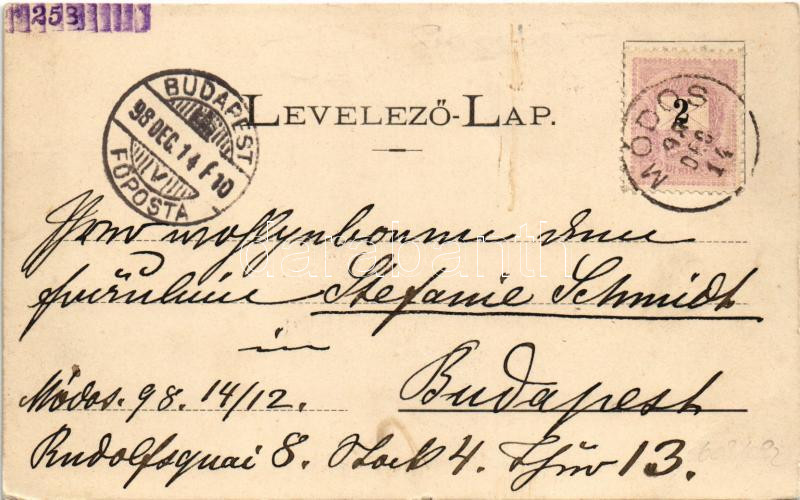 253
BUDAPEST
98 DEC. 14 F10
V
FŐPOSTA
LEVELEZŐ-LAP.
2
MÓDOS
98 DEC 14
Ihrer wohlgebornenen
Fräulein Stefanie Schmidt
in
Módos. 98. 14/12. Budapest
Rudolfsquai 8. Stock 4. Thür 13.
darabanth